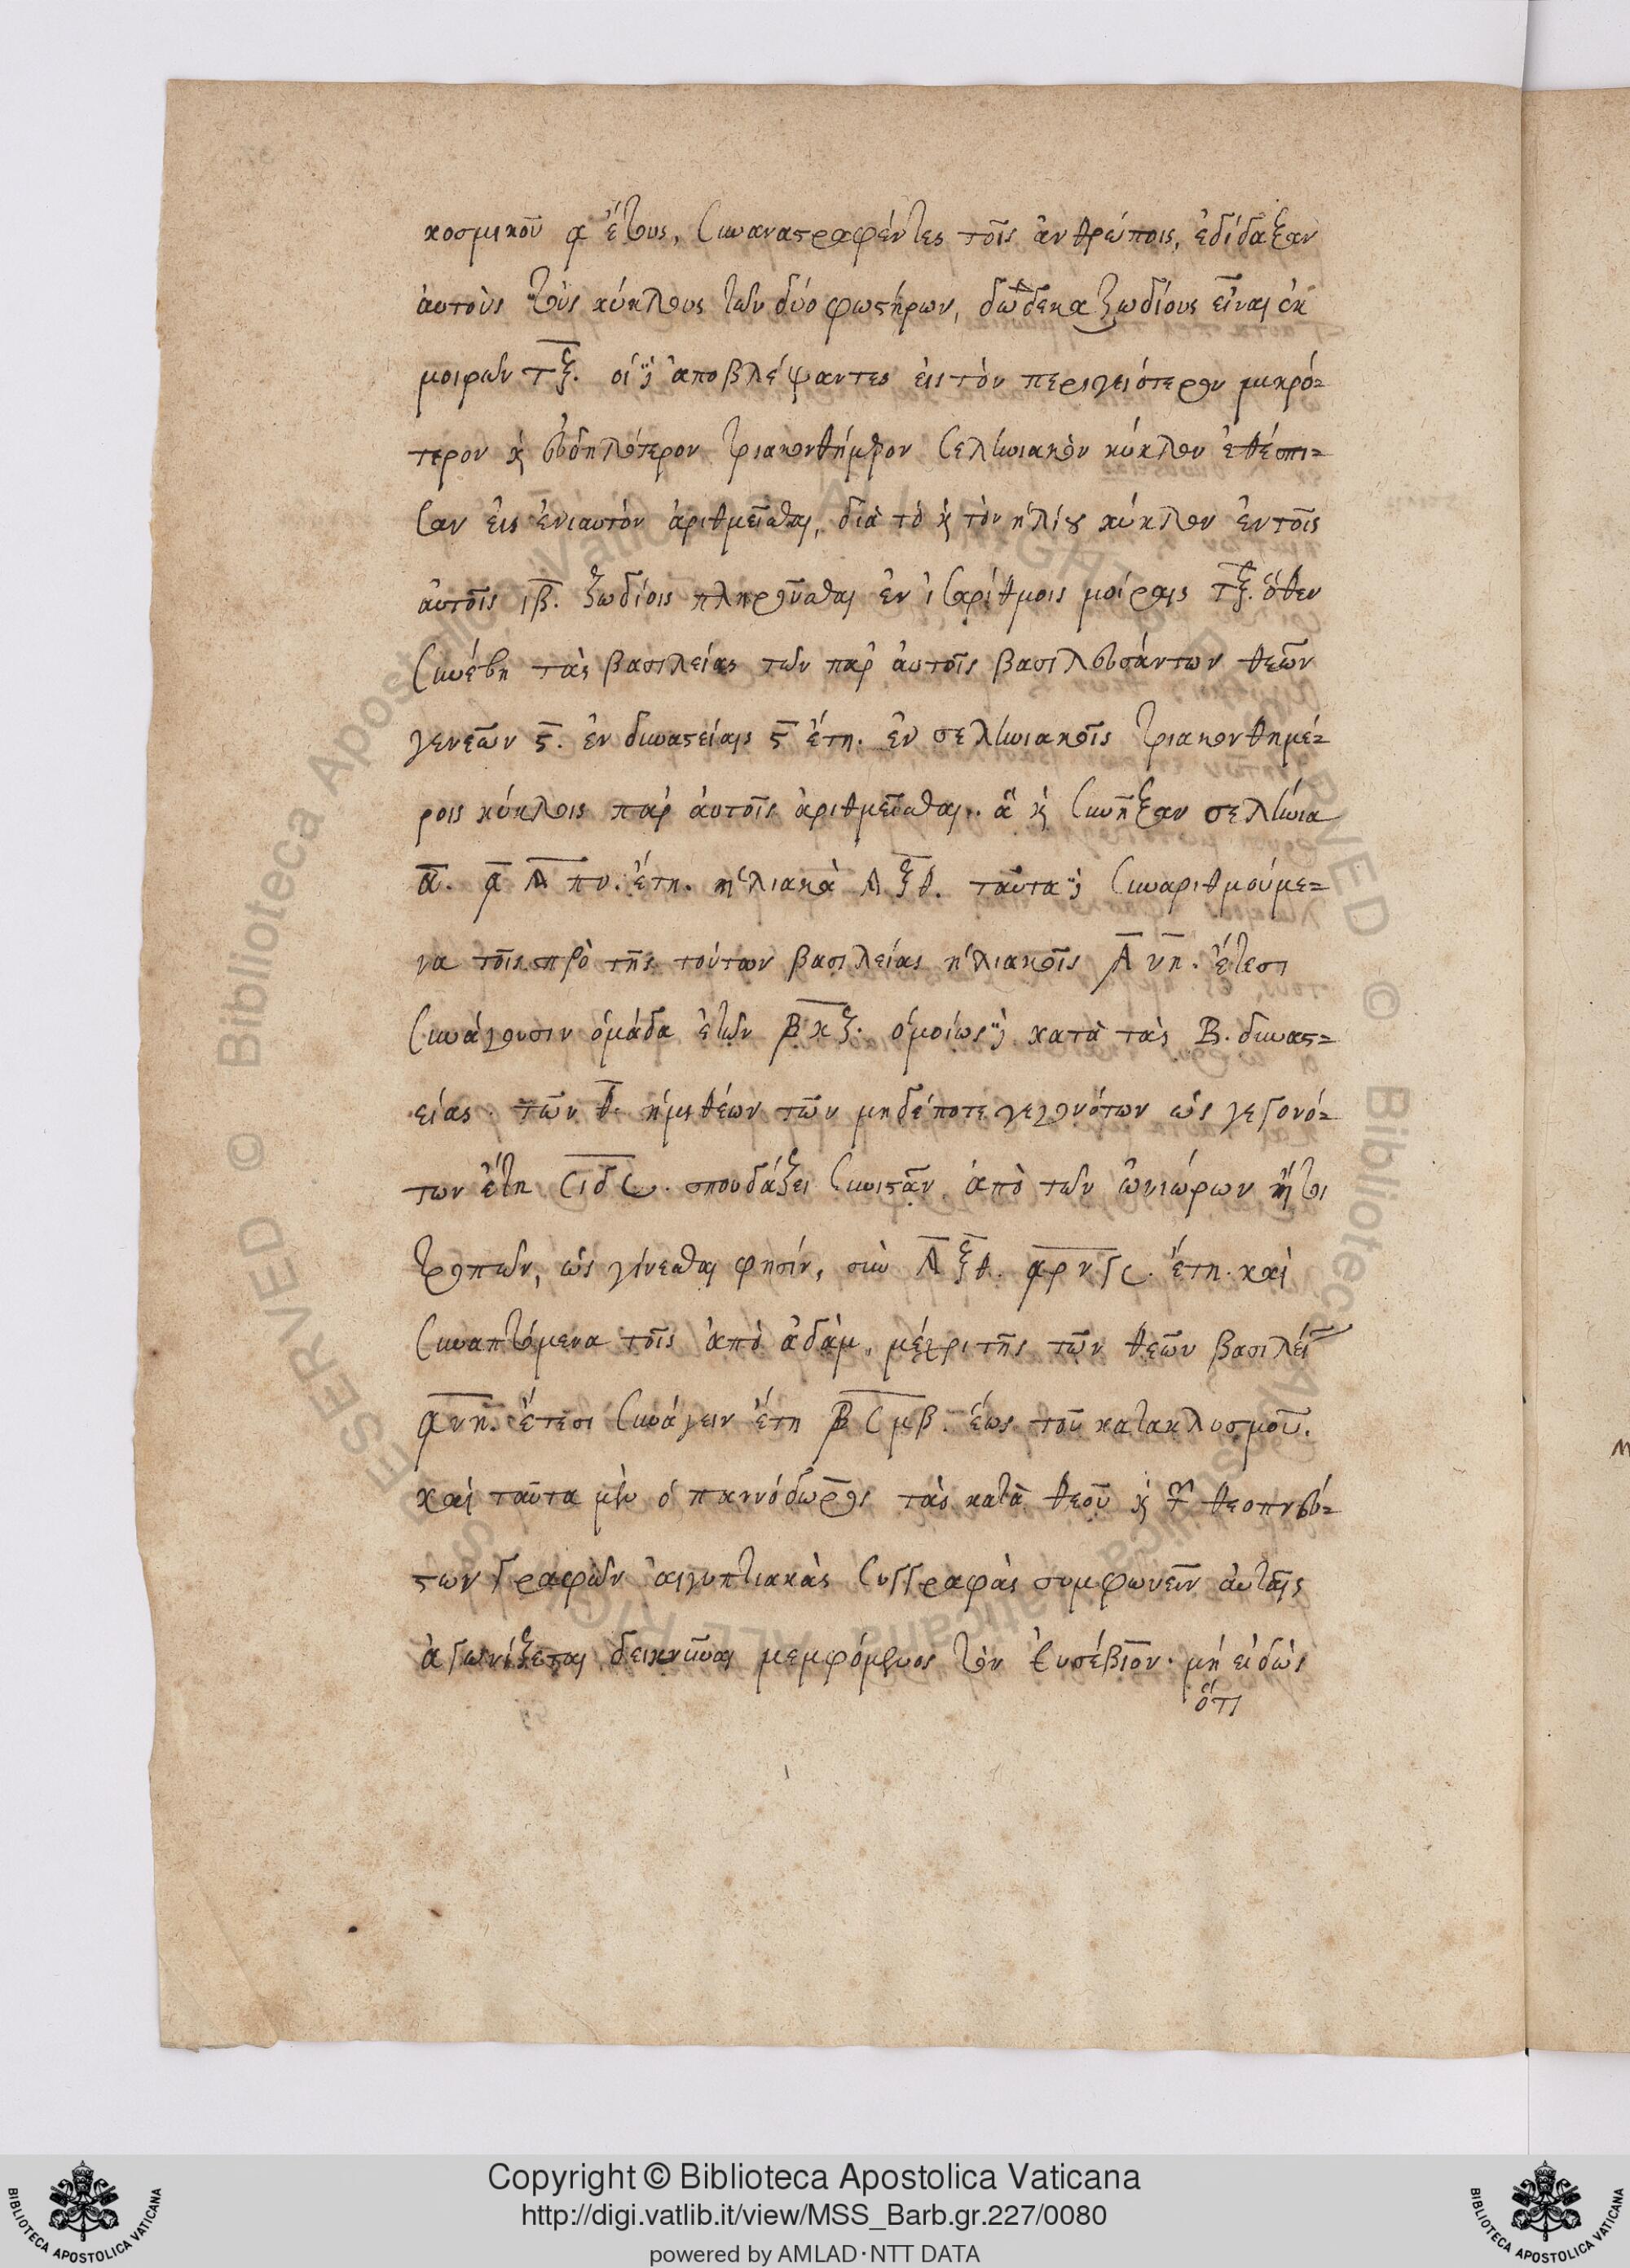 κοσμικοῦ ͵α ἔτους, συναναστραφέντες τοῖς ἀνθρώποις, ἐδίδαξαν
ἀυτοὺς τοὺς κύκλους τῶν δύο φωστήρων, δώδεκα ζωδίους εἶναι ἐκ
μοιρῶν τξ. οἱ δὲ ἀποβλέψαντες εἰς τὸν περιγειότερον μικρό=
τερον κὶ ευδηλότερον τριακονθήμερον σεληνιακὸν κύκλον ἐθέσπι=
σαν εἰς ἐνιαυτὸν ἀριθμεῖσθαι, διὰ τὸ κὶ τὸν ἡλίου κύκλον ἐν τοῖς
ἀυτοῖς ιβ. ζωδίοις πληροῦσθαι ἐν ἰσαρίθμοις μοίραις τξ. ὅθεν
συνέβη τὰς βασιλείας τῶν παρ ἀυτοῖς βασιλευσάντων θεῶν
γενεῶν ϛ. ἐν δυναστείαις ϛ ἔτη. ἐν σεληνιακοῖς τριακονθημέ=
ροις κύκλοις παρ ἀυτοῖς ἀριθμεῖσθαι. ἃ κὶ συνῆξαν σελήνια
ᾱ. ᾱ Λ πυ. ἔτη. ἡλιακὰ Λ ξθ. ταῦτα δὲ συναριθμούμε=
να τοῖς πρὸ τῆς τούτων βασιλείας ἡλιακοῖς Α νη. ἔτεσι
συνάγουσιν ὁμάδα ἐτῶν Β κζ. ὁμοίως δὲ κατὰ τὰς Β. δυναστ=
είας. τῶν θ. ἡμιθέων τῶν μηδέποτε γεγονότων ὡς γεγονό=
των ἔτη σιδ Ϲ. σπουδάζει συνιστᾶν ἀπὸ τῶν ὠνιώρων ἤτοι
τροπῶν, ὡς γίνεσθαι φησίν, σὺν Λ ξθ. ͵αρνγϹ. ἔτη. καὶ
συναπτόμενα τοῖς ἀπὸ ἀδὰμ, μέχρι τῆς τῶν θεῶν βασιλεί
͵ανη. ἔτεσι συνάγειν ἔτη Β σμβ. ἕως τοῦ κατακλυσμοῦ.
καὶ ταῦτα μὲν ὁ παννόδωρος τὰς κατὰ θεοῦ κὶ τῶν θεοπνεύ=
στων γραφῶν ἀιγυπτιακὰς συγγραφὰς συμφωνεῖν ἀυταῖς
ἀγωνίζεται δεικνύναι μεμφόμενος τὸν ἐυσέβιον. μὴ εἰδὼς
ὅτι
Copyright © Biblioteca Apostolica Vaticana
http://digi.vatlib.it/view/MSS_Barb.gr.227/0080
powered by AMLAD·NTT DATA
BIBLIOTECA APOSTOLICA VATICANA
BIBLIOTECA APOSTOLICA VATICANA